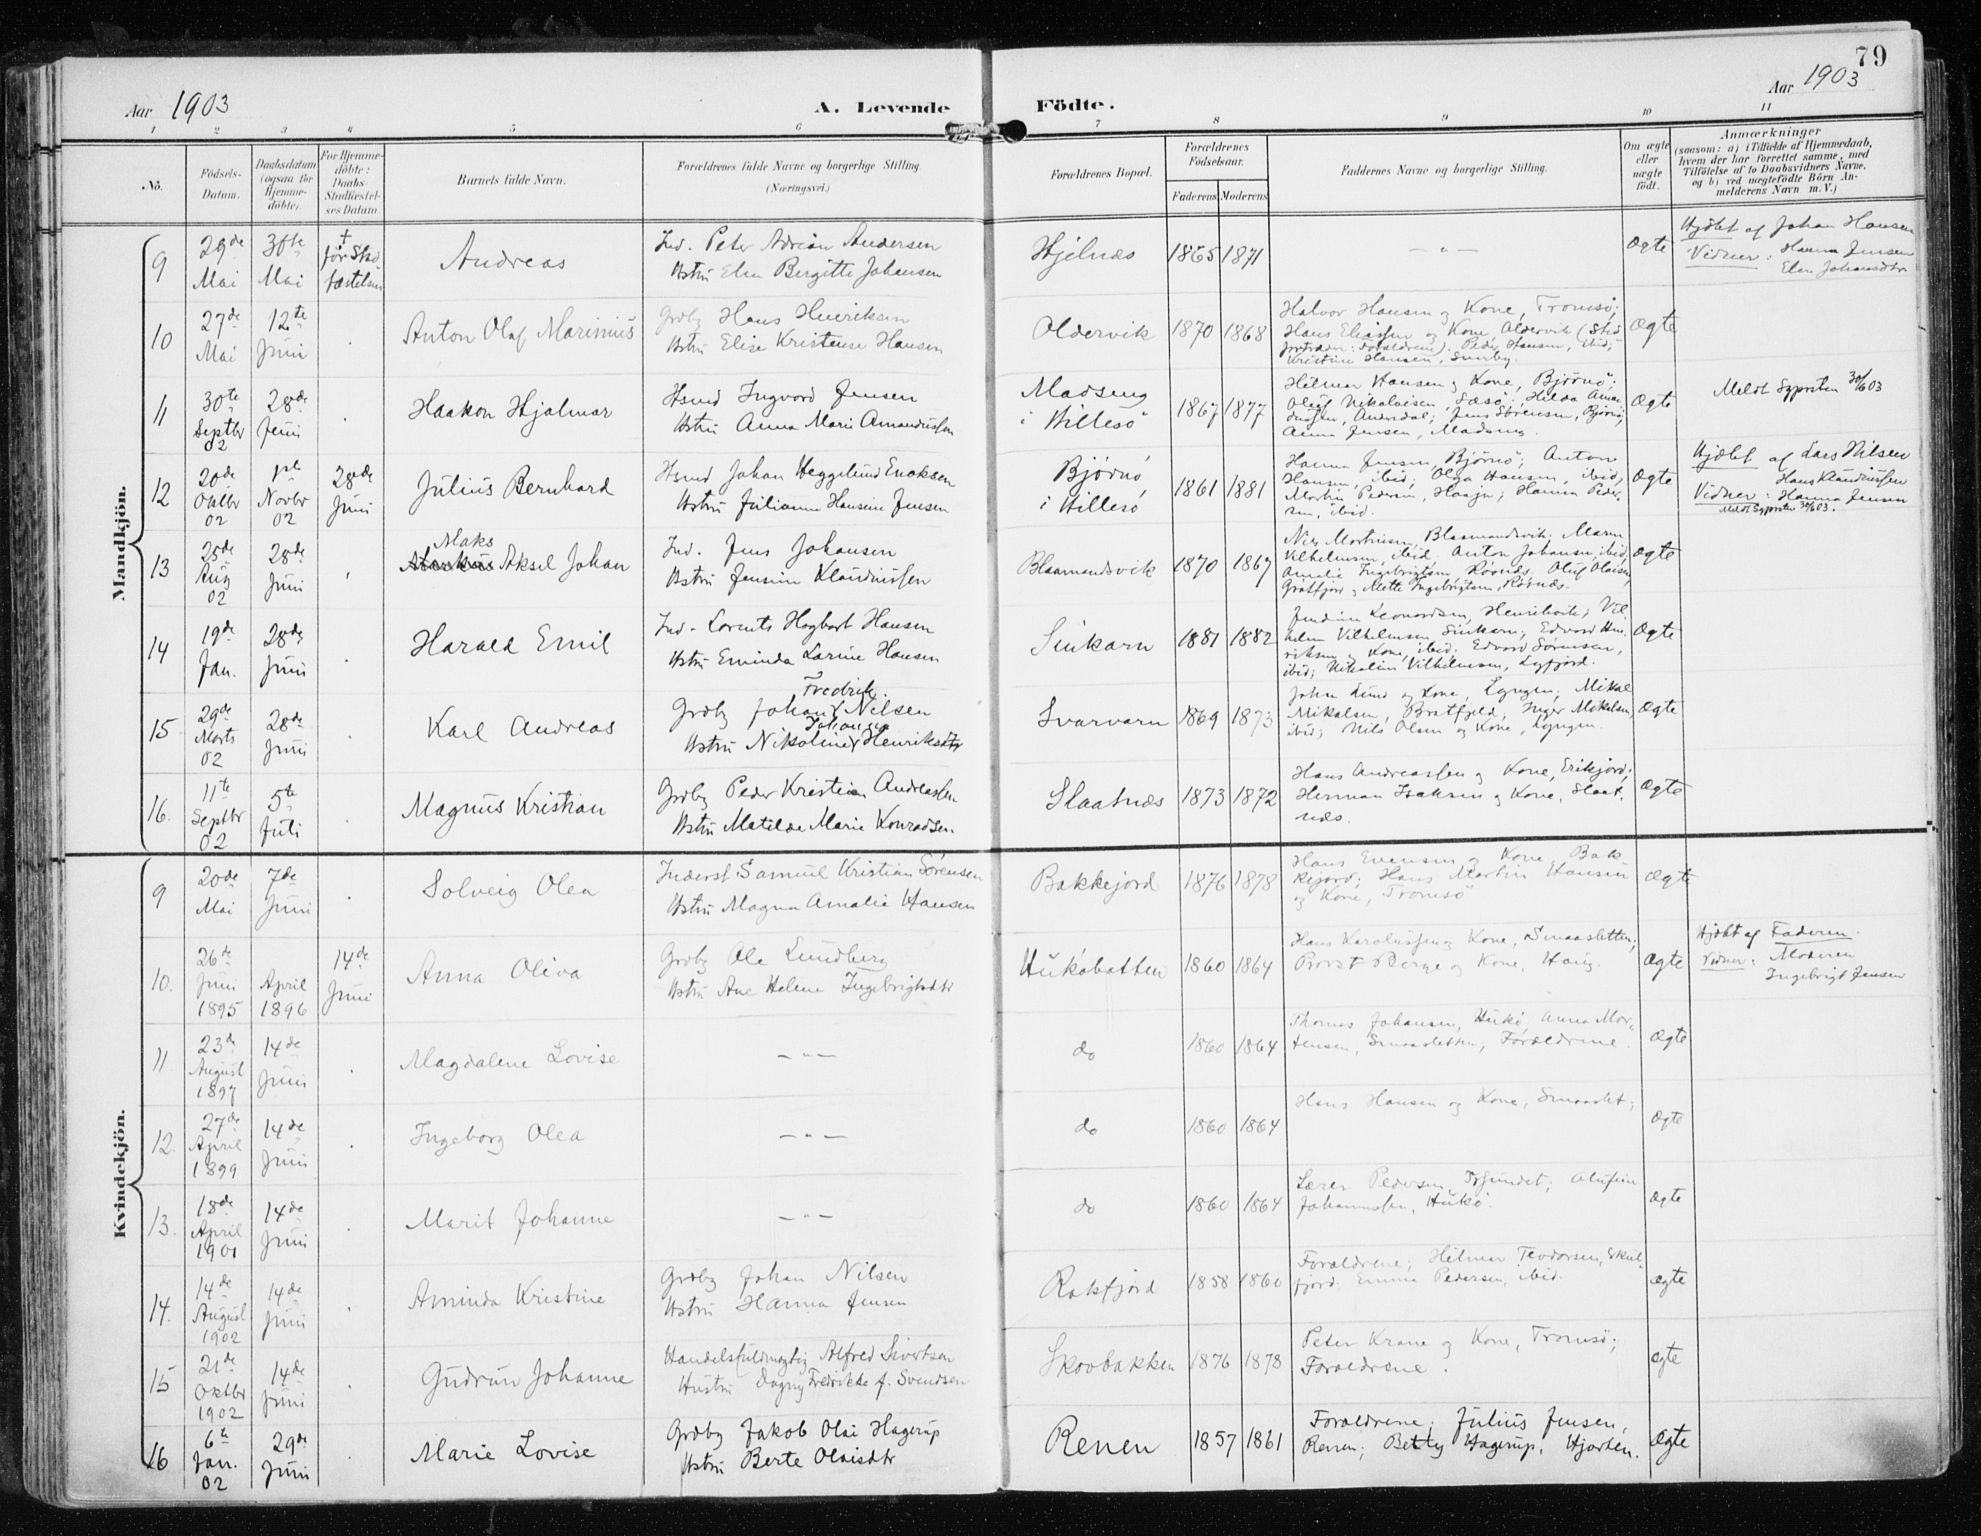 79
Aar 1903
A. Levende Födte.
Aar 1903
1 2 3 4 5 6 7 8 9 10 11
No.
Födsels-Datum.
Daabsdatum (ogsaa for Hjemme-döbte).
For Hjemme-döbte: Daabs-Stadfæstel-ses Datum
Barnets fulde Navn.
Forældrenes fulde Navne og borgerlige Stilling. (Næringsvei.)
Forældrenes Bopæl.
Forældrenes Födselsaar.
Faderens Moderens
Faddernes Navne og borgerlige Stilling.
Om ægte eller uægte födt.
Anmærkninger
(saasom: a) i Tilfælde af Hjemmedaab,
hvem der har forrettet samme, med
Tilföielse af to Daabsvidners Navne,
og b) ved uægtefödte Börn An-
melderens Navn m. V.)
Mandkjön.
9 29de Mai 30te Mai + før Stadfæstelsen Andreas
Ind. Peter Adrian Andersen
Hstru Elen Bergitte Johansen
Hjelnæs 1865 1871 — " — Ægte
Hjdbt af Johan Hansen
Vidner: Hanna Jensen
Elen Johansdtr
10 27de Mai 12te Juni Anton Olaf Marinius
Grdby Hans Henriksen
Hstru Elise Kristense Hansen
Oldervik 1870 1868
Halvor Hansen og Kone, Tromsø;
Hans Eliassen og Kone, Oldervik (Sted
fortræder: Forældrene). Peder Hansen, ibid;
Kristine Hansen,
Ægte
11 30te Septbr 02 28de Juni Haakon Hjalmar
Hsmd Ingvord Jensen
Hstru Anna Marie Amandussen
Madseng i Hillesö 1867 1877
Hilmar Hansen og Kone, Bjørnö;
Oluf Nikolaisen, Sæsö; Hilda Aman
dussen, Andersdal; Jens Sörensen, Bjørnö;
Anna Jensen, Madseng.
Ægte
Meldt Sypresten 30/6 03
12 20de Oktbr 02 1ste Novbr 02 28de Juni Julius Bernhard
Hsmd Johan Heggelund Enoksen
Hstru Julianna Hansine Jensen
Bjørnö i Hillesö 1861 1881
Hanna Jensen, Bjørnö; Anton
Hansen, ibid; Olga Hansen, ibid;
Martin Pedersen, Haaja; Hanna Peder
sen, ibid.
Ægte
Hjdbt af Lars Nilsen
Hans Klaudiussen
Vidner: Hanna Jensen
Meldt Sypresten 30/6 03.
13 25de Aug 02 28de Juni Maks Aksel Johan
Ind. Jens Johansen
Hstru Jensine Klaudiussen
Blaamandsvik 1870 1867
Nils Martinsen, Blaamandsvik; Maren
Vilhelmsen, ibid. Anton Johansen, ibid,
Amalie Ingebrigtsen, Rövnes, Oluf Olaisen,
Grötfjord og Mette Ingebrigtsen, Rövnes.
Ægte
14 19de Jan. 28de Juni Harald Emil
Ind. Lorents Hagbart Hansen
Hstru Eminda Larine Hansen
Sinkarn 1881 1882
Leonardsen, Henrikvik; Vil
helm Vilhelmsen, Sinkarn; Edvard Hen
riksen og Kone, ibid; Edvard Sörensen,
ibid; Nikoline Vilhelmsen, Lyfjord.
Ægte
15. 29de Marts 02 28de Juni Karl Andreas
Grdby Johan Fredrik Nilsen
Hstru Nikoline Johanna Henriksdtr
Svarvarn 1869 1873
Johan Lund og Kone, Lyngen; Mikal
Mikalsen, Bratfjeld, Inger Mikalsen,
ibid; Nils Olsen og Kone, Lyngen.
Ægte
16. 11te Septbr 02 5te Juli Magnus Kristian
Grdby Peder Kristian Andreassen
Hstru Matilde Marie Konradsen
Slaatnæs 1873 1872
Hans Andreassen og Kone, Erikjord;
Herman Isaksen og Kone, Slaat-
næs.
Ægte
Kvindekjön.
9 20de Mai 7de Juni Solveig Olea
Inderst Samuel Kristian Sørensen
Hstru Magna Amalie Hansen
Bakkejord 1876 1878
Hans Evensen og Kone, Bak
kejord; Hans Martin Hansen
og Kone, Tromsö
Ægte
10. 26de Juni 1895 April 1896 14de Juni Anna Oliva
Grdby Ole Lundberg
Hstru Ane Helene Ingebrigtsdtr
Huköbotten 1860 1864
Hans Karolussen og Kone, Smaasletten;
Provst Berge og Kone, Haug.
Ægte
Hjdbt af Faderen.
Vidner: Moderen
Ingebrigt Jensen
11. 23de August 1897 14de Juni Magdalene Lovise — " —
do 1860 1864
Thomas Johansen, Hukö, Anna Mor-
tensen, Smaasletten, Forældrene.
Ægte
12. 27de April 1899 14de Juni Ingeborg Olea — " —
do 1860 1864
Hans Hansen og Kone, Smaaslet;
Ægte
13. 18de April 1901 14de Juni Marit Johanne — " —
do 1860 1864
Lærer Pedersen, Olufine
Johannessen, Hukö.
Ægte
14. 14de August 1902 14de Juni Aminda Kristine
Grdby Johan Nilsen
Hstru Hanna Jensen
Rakfjord 1858 1860
Forældrene; Hilmar Teodorsen, Skul-
fjord. Emma Pedersen, ibid.
Ægte
15 21de Oktbr 1902 14de Juni Gudrun Johanne
Handelsfuldmægtig Alfred Sivertsen
Hustru Dagny Fredrikke f. Svendsen
Skovbakken 1876 1878
Peter Krane og Kone, Tromsö;
Forældrene.
Ægte
16 6te Jan. 02 29de Juni Marie Lovise
Grdby Jakob Olai Hagerup
Hstru Berte Olaisdtr
Renen 1857 1861
Forældrene; Julius Jensen,
Renen; Betty Hagerup, Hjorten.
Ægte